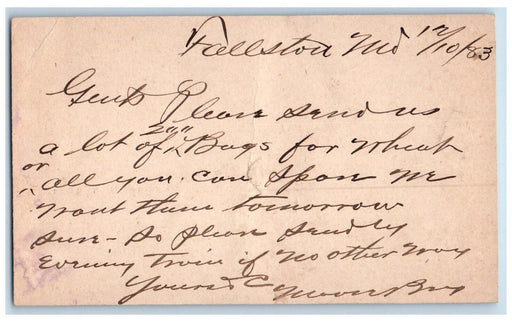 Fallston Md 12/10/83
Gents Please send us
a lot of 200 Bags for Wheat
or all you can Spare we
want them tomorrow
sure - So please send by
Evening train if no other way
Yours &C Moore Bro